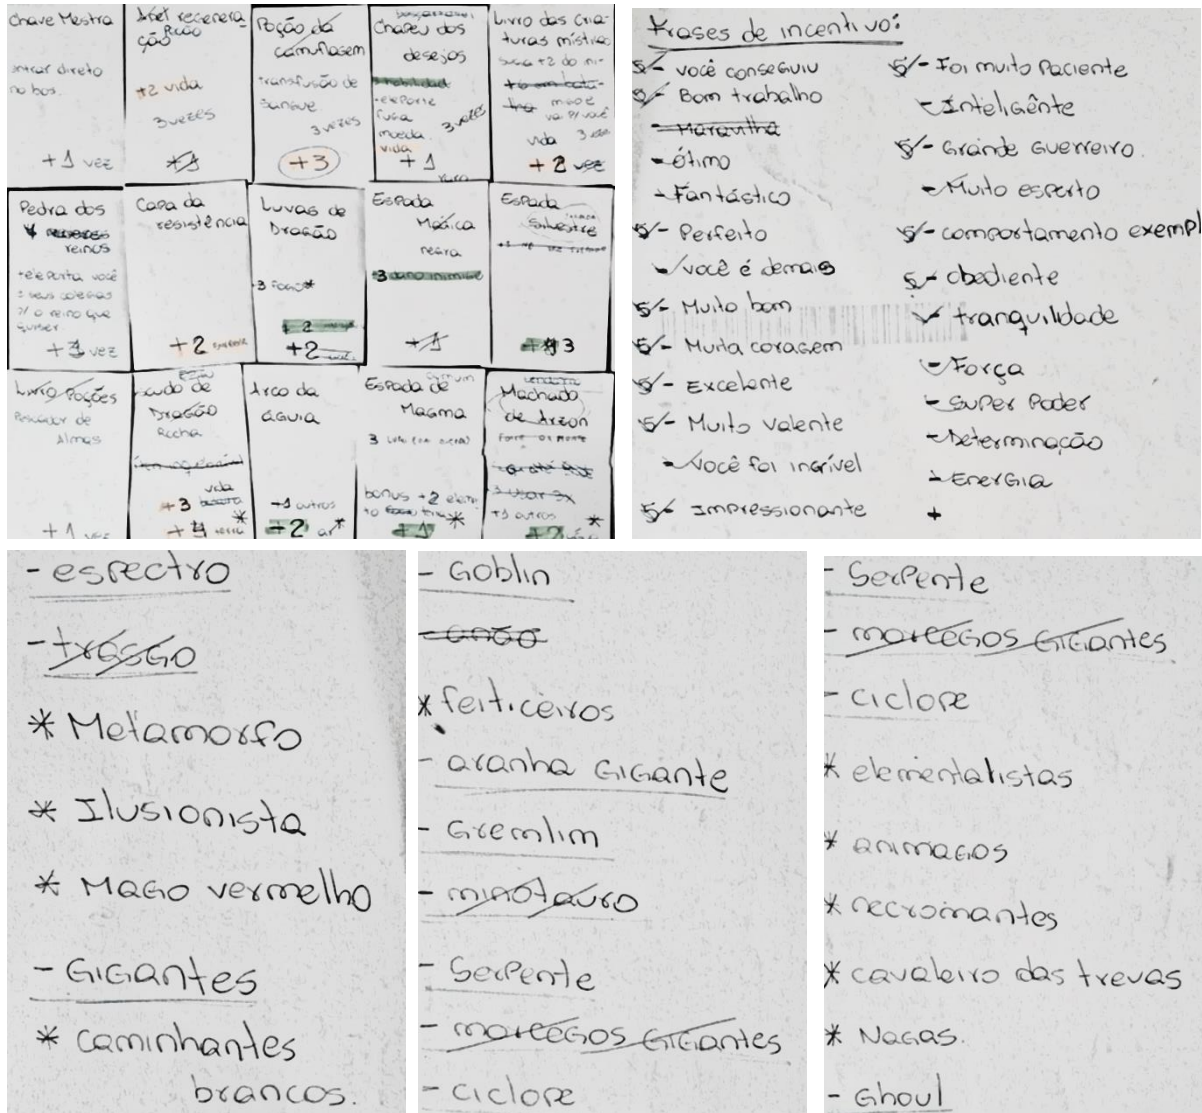 Chave Mestra
entrar direto
no bos.
+1 vez
Anel regenera-
ção
+2 vida
3 vezes
Poção da
camuflagem
transfusão de
sangue
3 vezes
+3
Chapeu dos
desejos
fuga
moeda
vida
3 vezes
+1
Livro das cria-
turas místicas
vida
+2 vez
Pedra dos
reinos
você
o reino que
quiser
+1 vez
Capa da
resistência
+2
Luvas de
Dragão
+2
+2
Espada
Magica
negra
+3 dano inimigo
+1
Espada
Silvestre
3
Livro Poções
Pescador de
Almas
+1 vez
Escudo de
Dragão
Rocha
vida
+3
+4 terra *
Arco da
Águia
+1 outros
+2 ar*
Espada de
Magma
bonus +2 elemen
to
+1 *
Machado
de Arzon
3 usar 3x
+1 outros
+2 *
Frases de incentivo:
5 - você conseguiu
5 - Bom trabalho
- Maravilha
- ótimo
- Fantástico
5 - Perfeito
- você é demais
5 - Muito bom
5 - Muita coragem
5 - Excelente
5 - Muito valente
- você foi incrível
5 - Impressionante
5 - Foi muito Paciente
- Inteligênte
5 - Grande Guerreiro.
- Muito esperto
5 - comportamento exempl
5 - obediente
- tranquilidade
- Força
- Super Poder
- Determinação
- Energia
+
- espectro
- trasgo
* Metamorfo
* Ilusionista
* Mago vermelho
- Gigantes
* caminhantes
brancos.
- Goblin
- anão
* feiticeiros
- aranha Gigante
- Gremlim
- minotauro
- Serpente
- morcegos Gigantes
- ciclope
- Serpente
- morcegos Gigantes
- ciclope
* elementalistas
* animagos
* necromantes
* cavaleiro das trevas
* Nagas.
- Ghoul